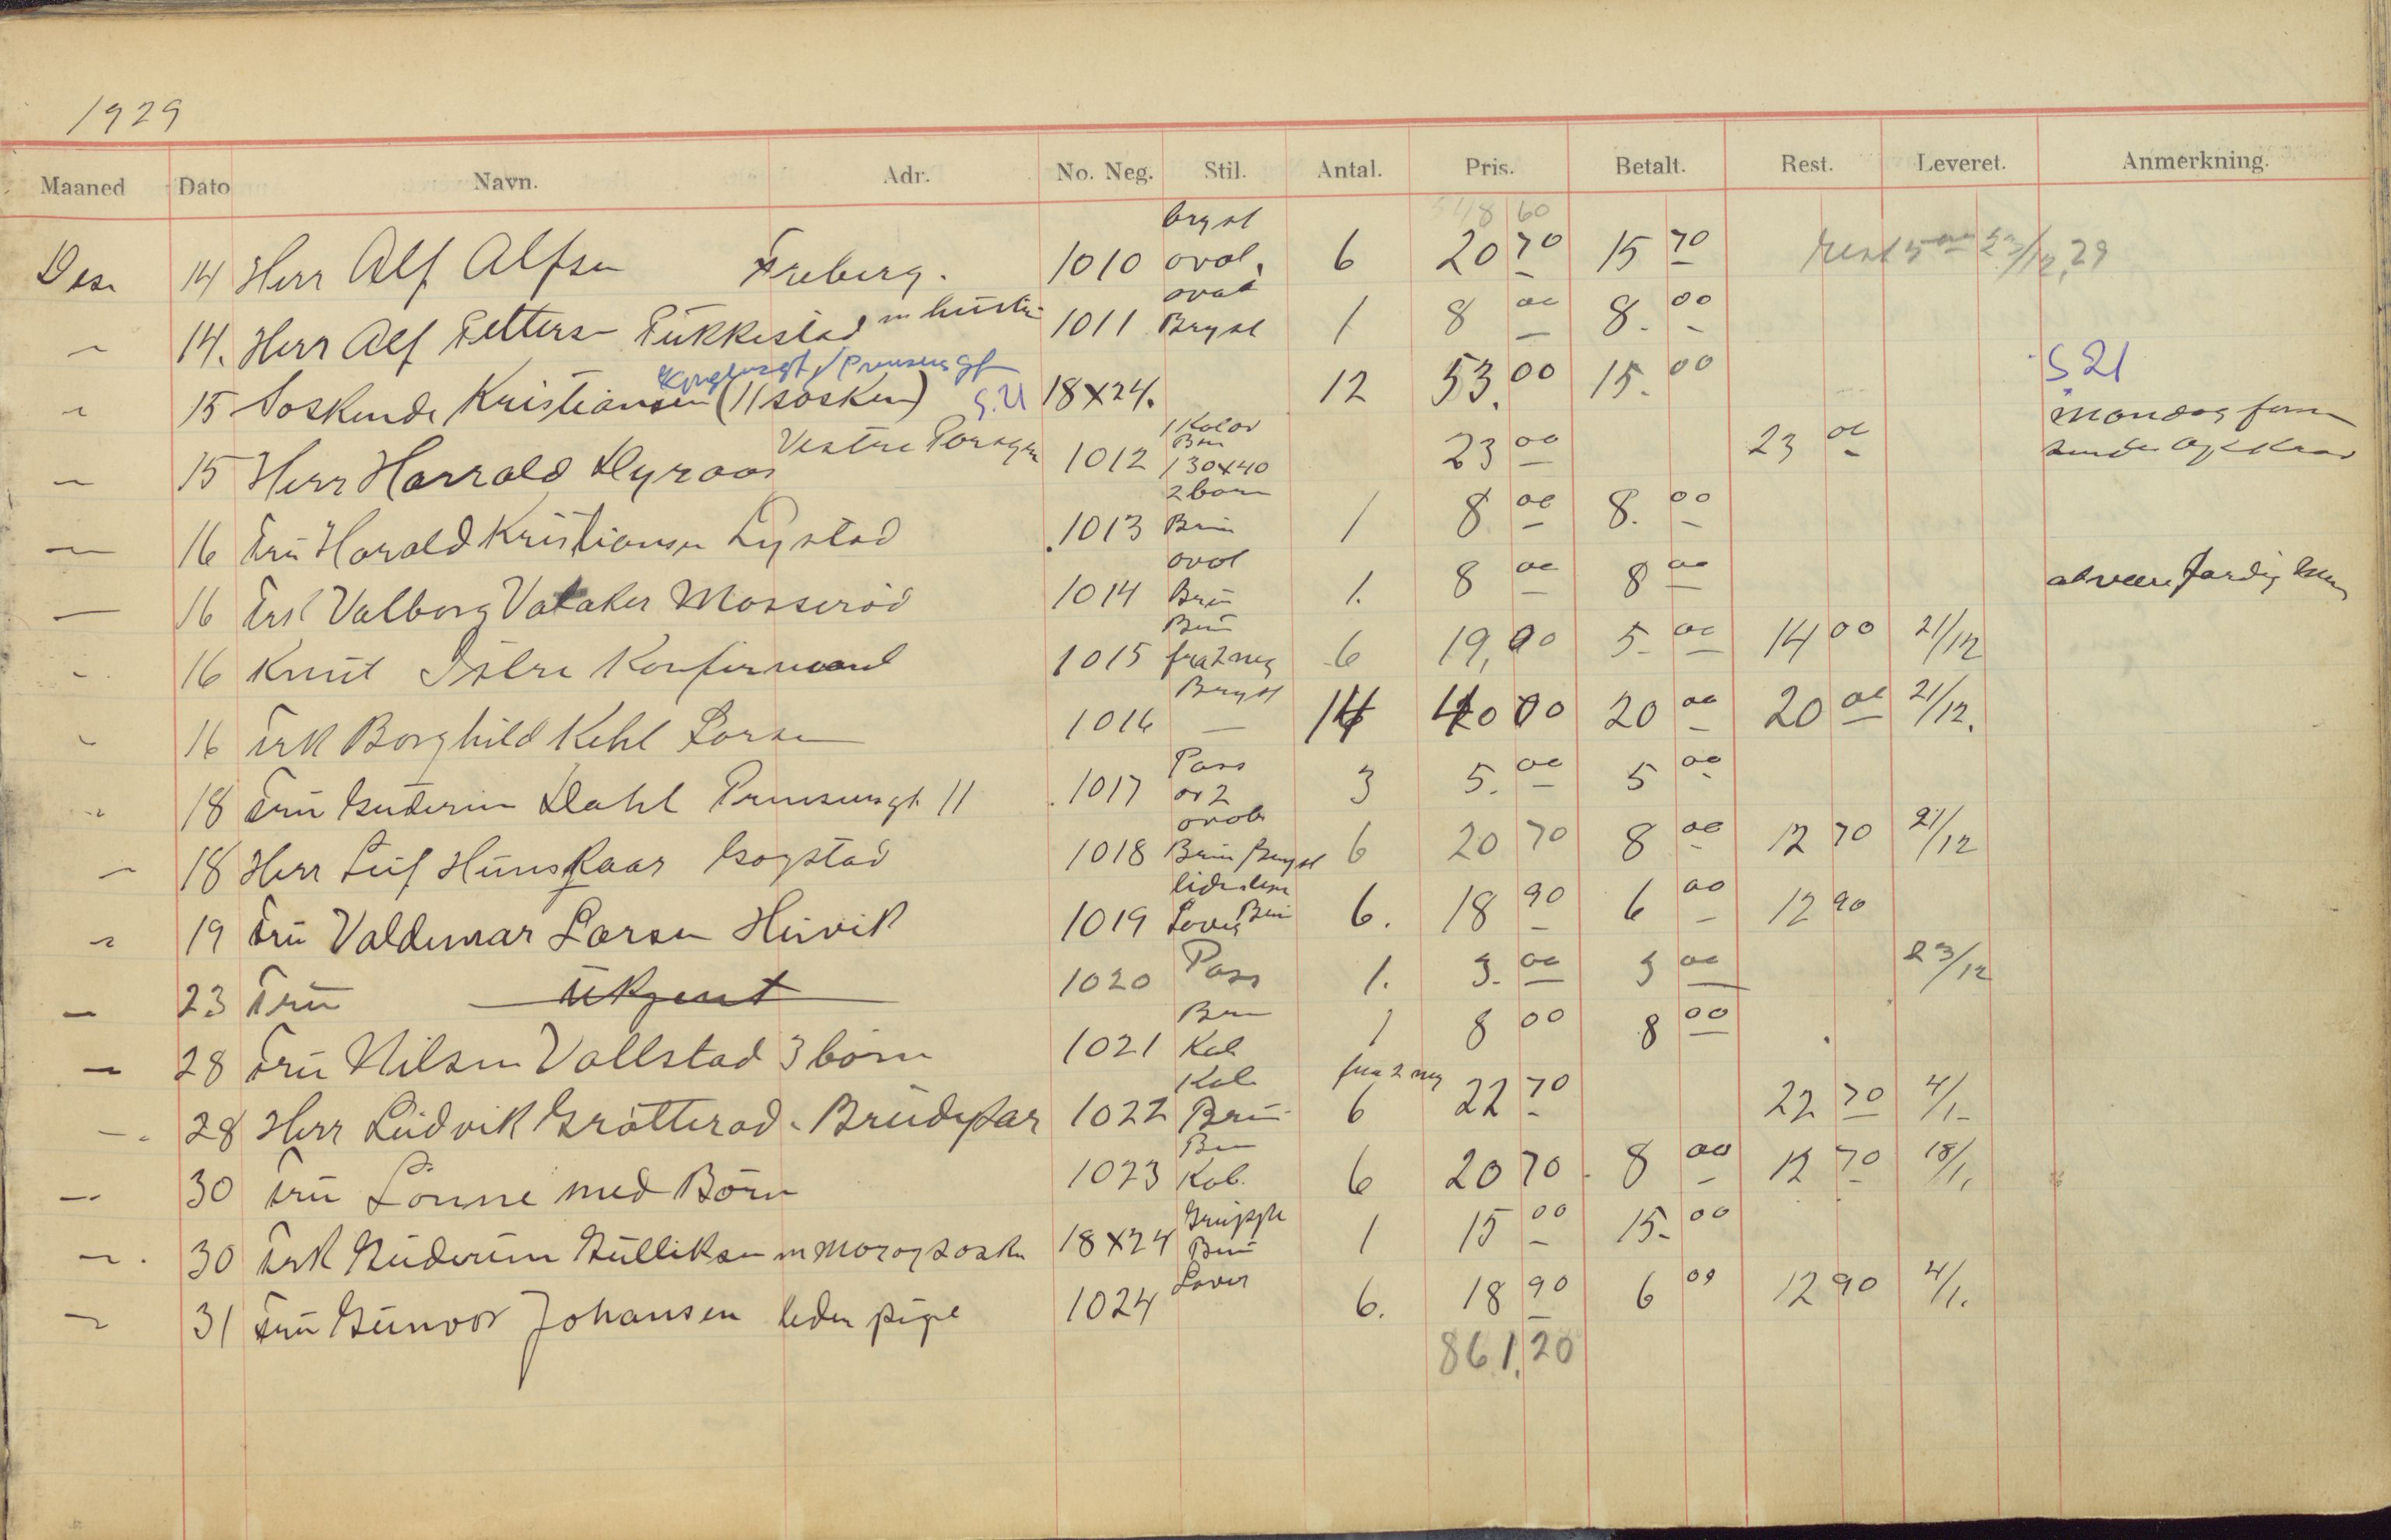 1929
Maaned Dato Navn. Adr. No. Neg. Stil. Antal. Pris. Betalt. Rest. Leveret. Anmerkning.
548 60
Des 14 Herr Alf Alfsen Freberg. 1010 bryst oval. 6 20 70 15 70 rest 5 00 23/12, 29
" 14. Herr Alf Pettersen Fükkestad m hüstrü 1011 oval Bryst 1 8 00 8. 00
" 15 Soskende Kristiansen (11 søsken) S. 21 18x24. 12 53. 00 15. 00 S 21
" 15 Herr Harrald Dyraas Vestre 1012 1 Kolor Brun 1 30x40 23 00 23 00 Mandag form
" 16 Frü Harald Kristiansen Lystad 1013 2 born Brün 1 8 00 8. 00
" 16 Frk Valborg Vataker Mosserød 1014 oval Brün 1. 8 00 8 00 at være færdig
" 16 Knüt Istre Konfirmand 1015 Brün fra 2 neg 6 19, 00 5 00 14 00 21/12
" 16 Frk Borghild Kehl Larsen 1016 Bryst — 14 40 00 20 00 20 00 21/12.
" 18 Frü Güdrün Dahl Prinsensgt. 11 1017 Pass 3 5. 00 5 00
" 18 Herr Leif Hünskaar Gogstad 1018 oval Brün Bryst 6 20 70 8 00 12 70 21/12
" 19 Frü Valdemar Larsen Hüvik 1019 liden Brün 6. 18 90 6 00 12 90
" 23 Frü ükjent 1020 Pass 1. 3. 00 3 00 23/12
" 28 Frü Nilsen Vallstad 3 børn 1021 Brun Kab 1 8 00 8 00
" 28 Herr Lüdvik Grøtterød. Brüdepar 1022 Kab Brün fra 2 neg 6 22 70 22 70 4/1
" 30 Frü Lønne med Børn 1023 Brun Kab. 6 20 70 8 00 12 70 18/1.
" 30 Frk Güdrün Gülliksen m mor og søsken 18x24 Grüppe Brün 1 15 00 15. 00
" 31 Frü Günvor Johansen liden pige 1024 6. 18 90 6 00 12 90 4/1.
861,20